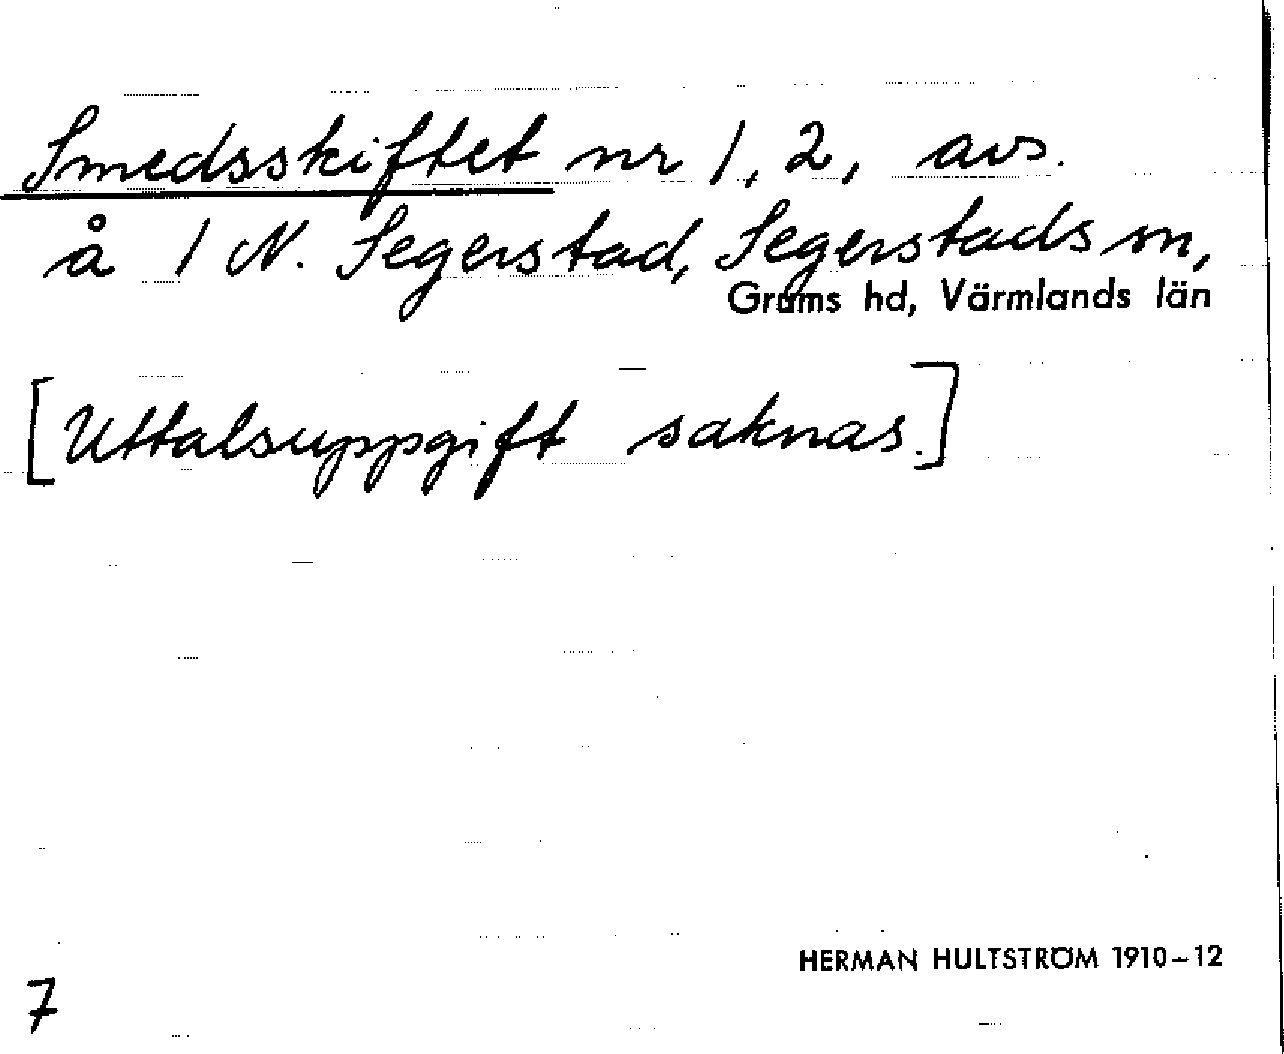 Smedsskiftet nr 1, 2, avs.
å 1 N. Segerstad, Segerstads sn,
Grums hd, Värmlands län
[Uttalsuppgift saknas.]
HERMAN HULTSTRÖM 1910–12
7